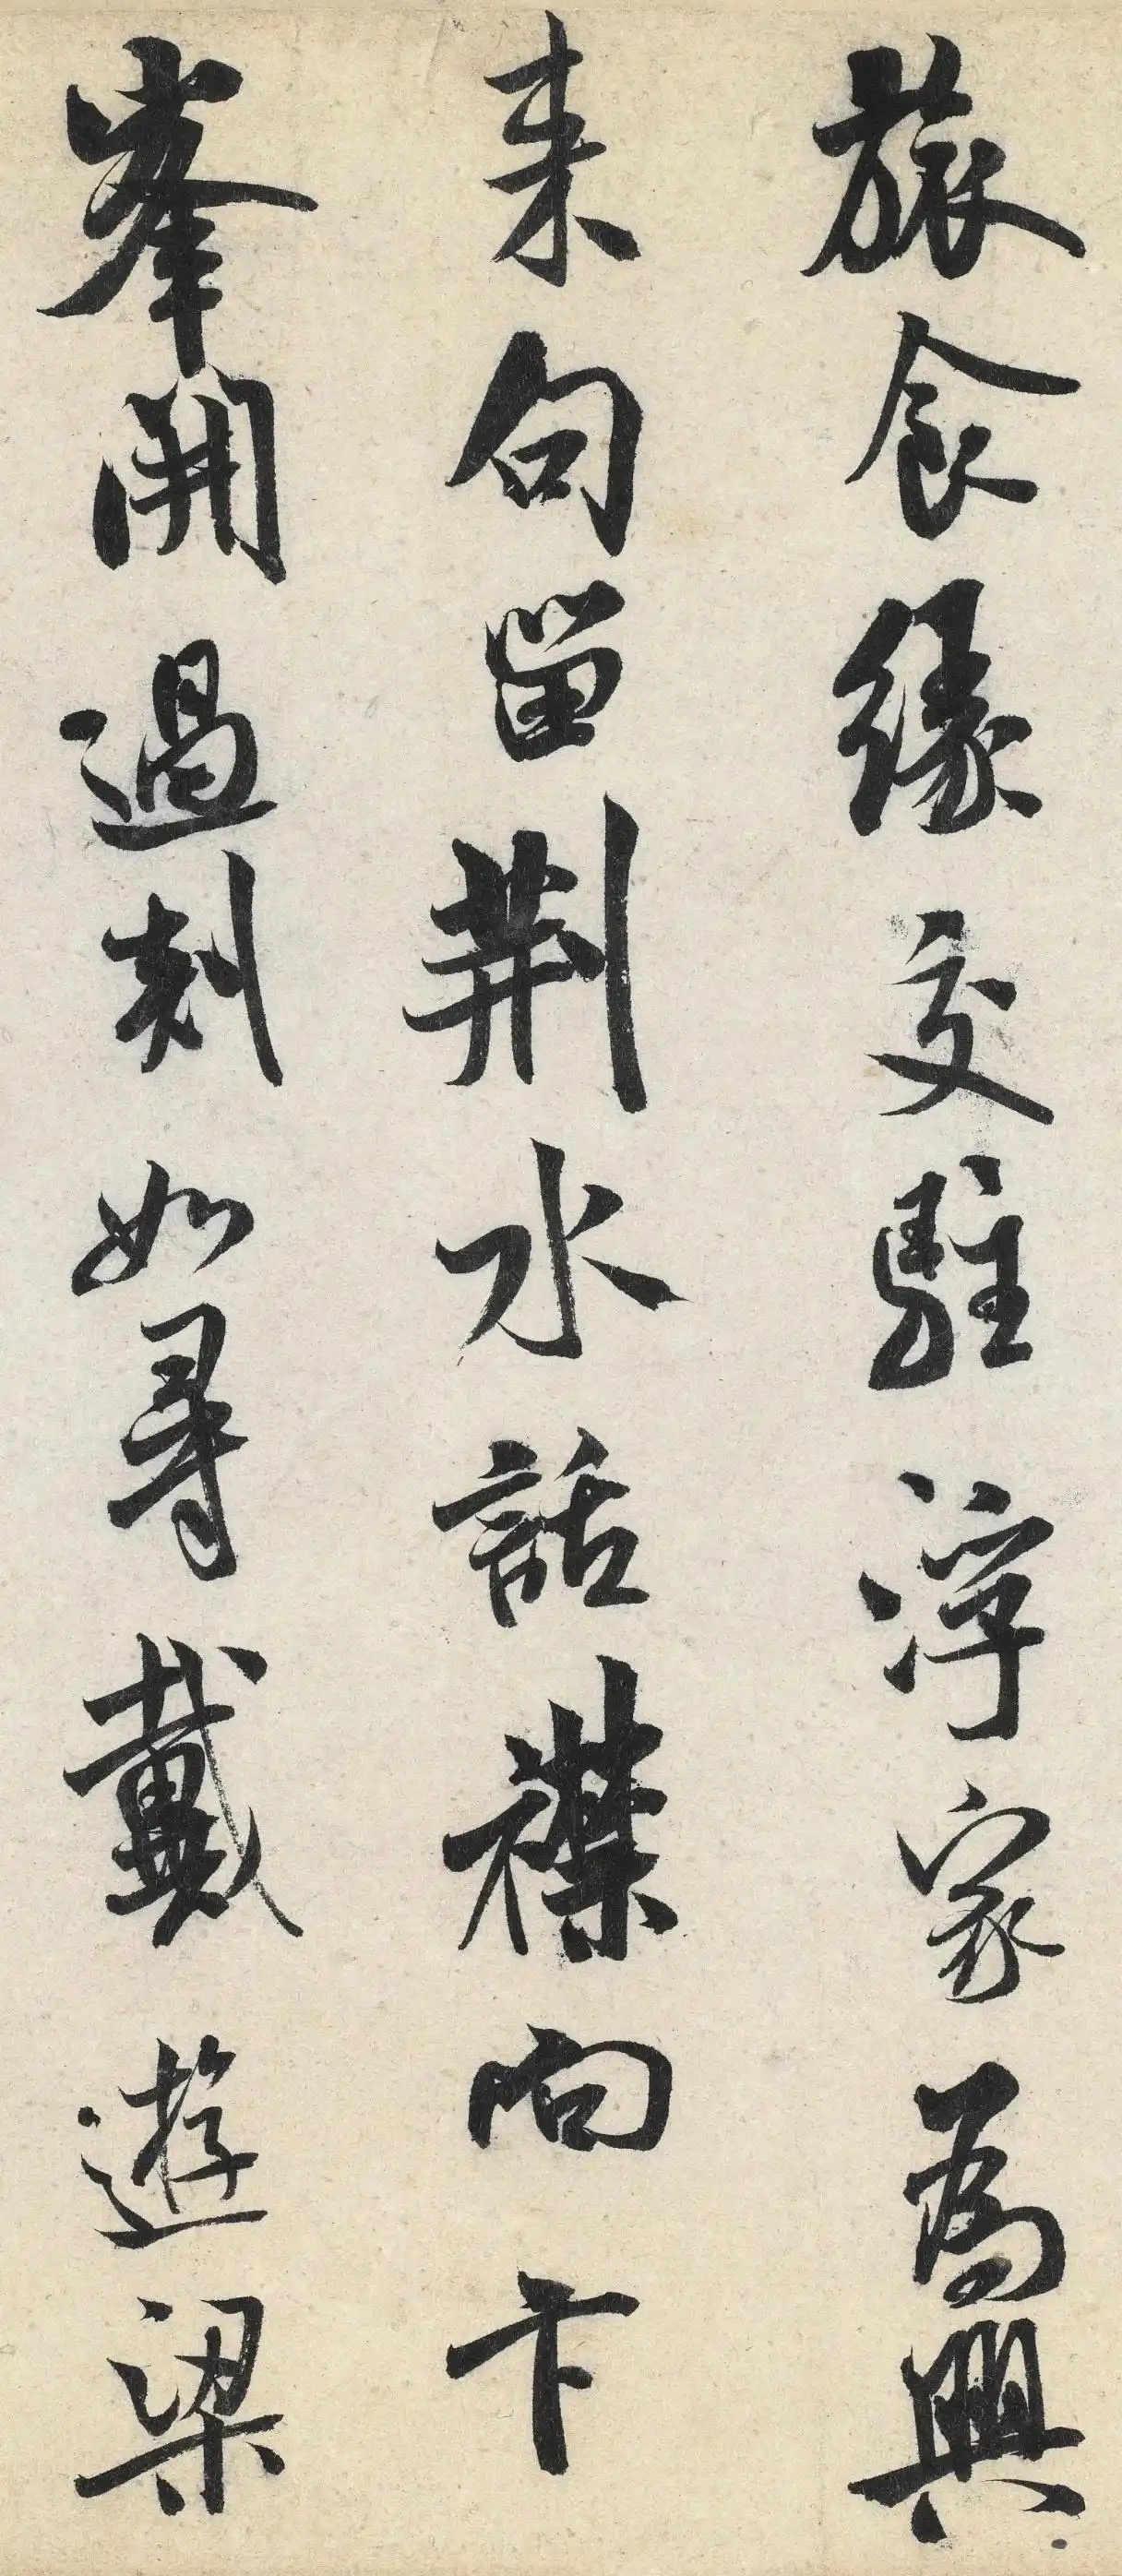 旅食緣交駐浮家爲興
来句留荆水話襟向卞
峯開過剡如尋戴遊梁